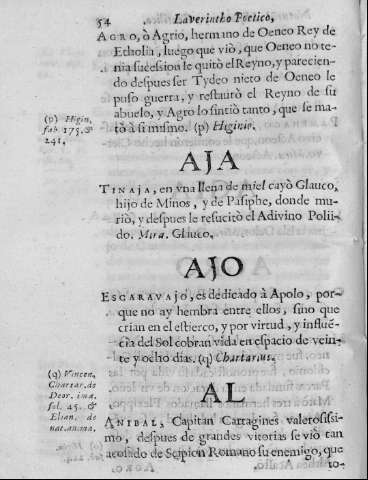 54 Laverintho Poetico,
AGRO, ò Agrio, hermano de Oeneo Rey de
Etholia, luego que viò, que Oeneo no te-
nia sucession le quitò el Reyno, y parecien-
do despues ser Tydeo nieto de Oeneo le
puso guerra, y restaurò el Reyno de su
abuelo, y Agro lo sintiò tanto, que se ma-
tò à si mismo. (p) Higinio.
(p) Higin.
fab 175. &
241.
AJA
TINAJA, en vna llena de miel cayò Glauco,
hijo de Minos, y de Pasiphe, donde mu-
riò, y despues le resucitò el Adivino Polii-
do. Mira. Glauco.
AJO
ESCARAVAJO, es dedicado à Apolo, por-
que no ay hembra entre ellos, sino que
crian en el estierco, y por virtud, y influē-
cia del Sol cobran vida en espacio de vein-
te y ocho dias. (q) Chartarus.
(q) Vincen.
Chartar. de
Deor. ima.
fol. 45. &
Elian. de
nat. anima.
AL
ANIBAL, Capitan Cartagines valerosissi-
mo, despues de grandes vitorias se viò tan
acosado de Scipion Romano su enemigo, que
to-